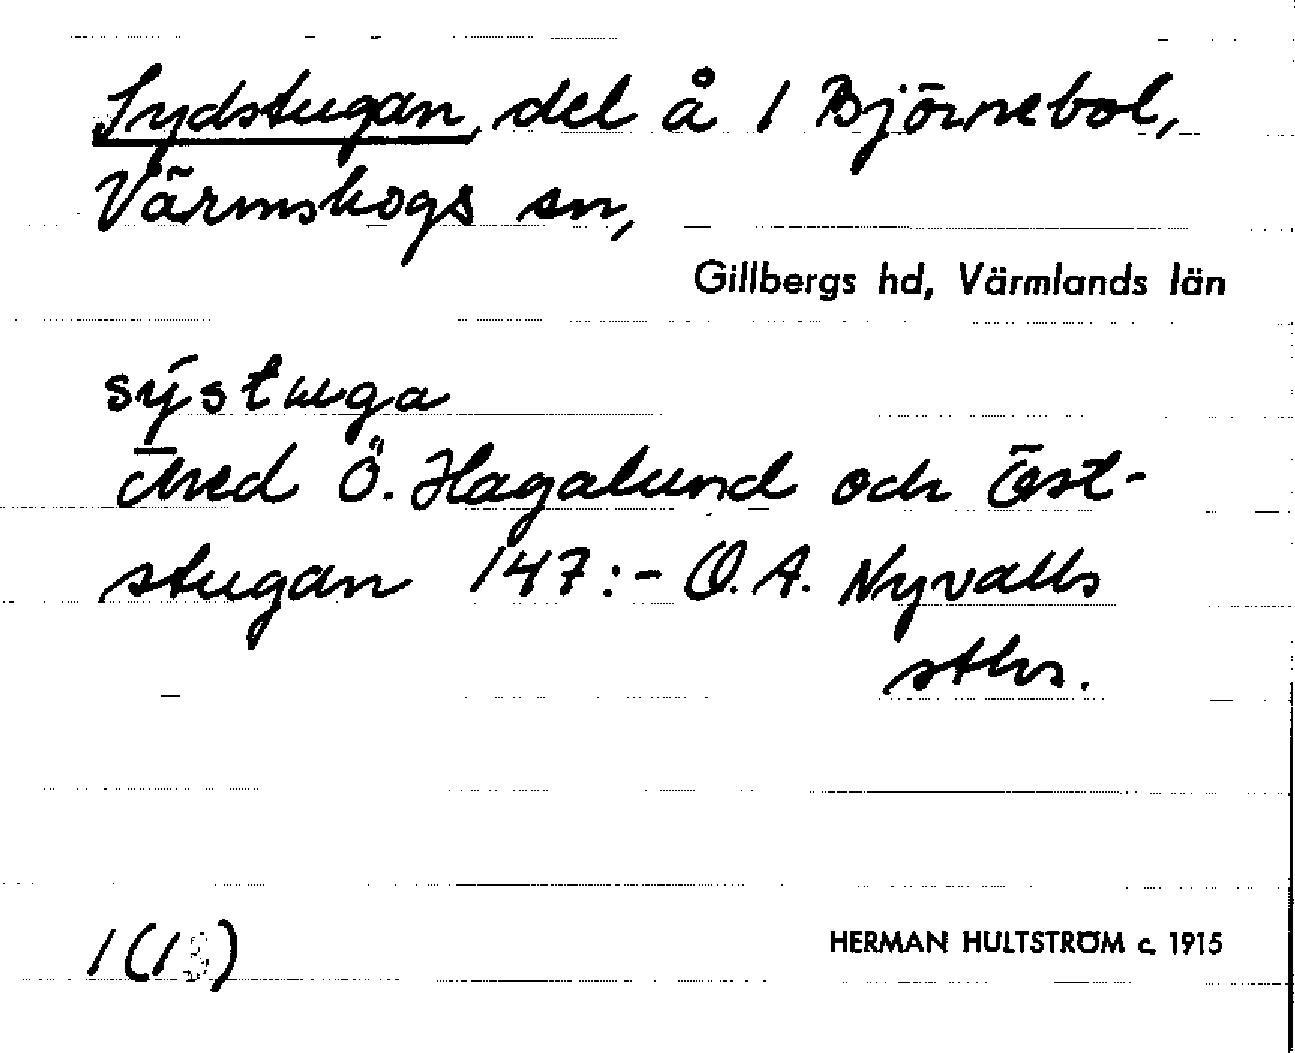 Sydstugan, del å 1 Björnebol,
Värmskogs sn,
Gillbergs hd, Värmlands län
sýstuga
Med Ö. Hagalund och Öst-
stugan 147:- O. A. Nyvalls
sthr.
1(1)
HERMAN HULTSTRÖM c. 1915